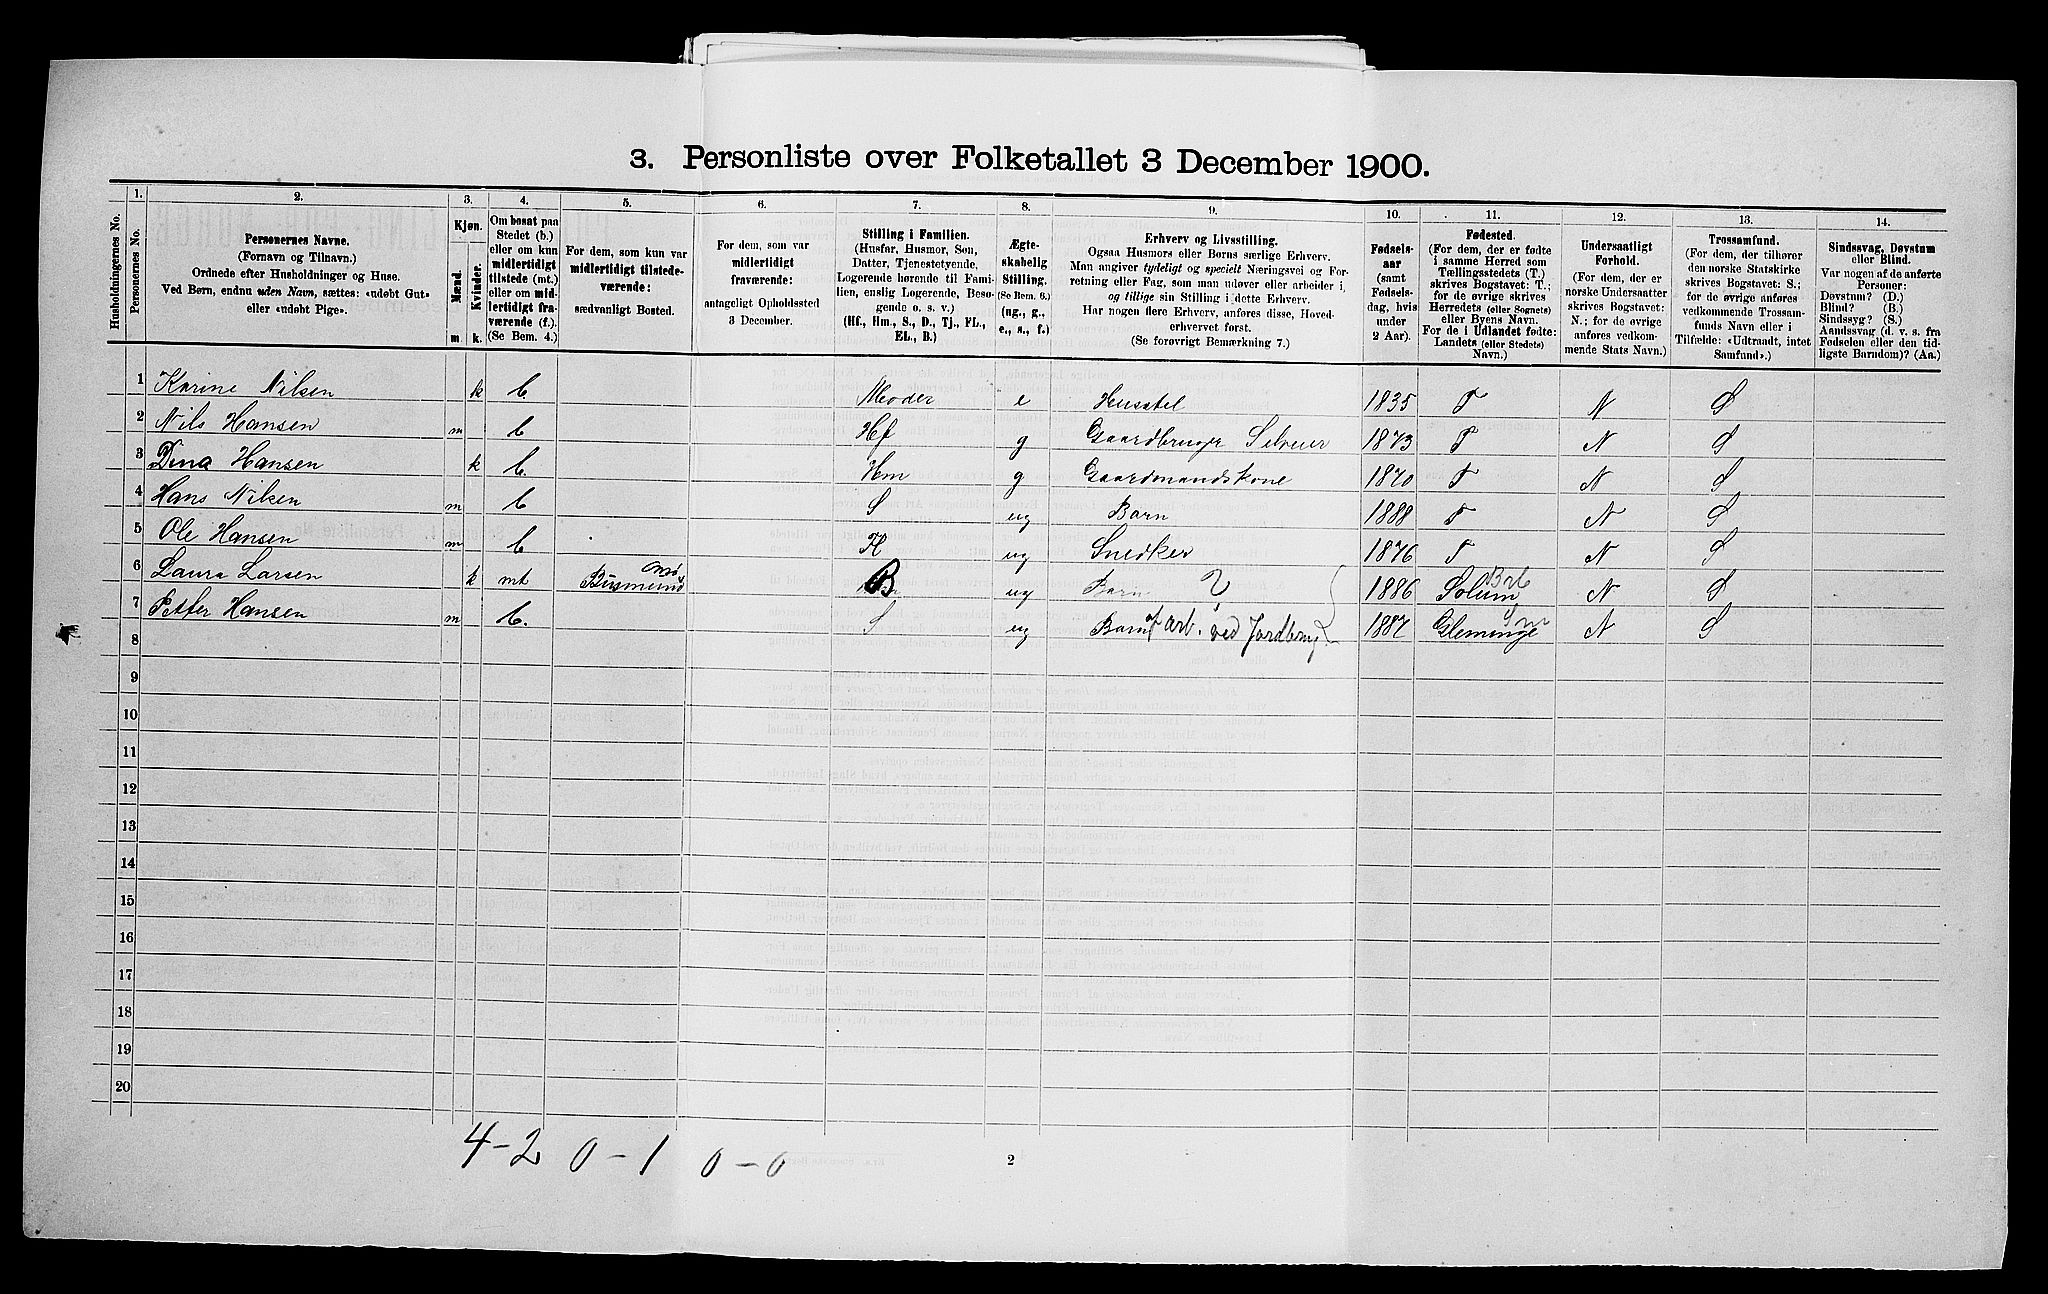 3. Personliste over Folketallet 3 December 1900.
Husholdningernes No.
1.
Personernes No.
2.
Personernes Navne.
(Fornavn og Tilnavn.)
Ordnede efter Husholdninger og Huse.
Ved Børn, endnu uden Navn, sættes: «udøbt Gut»
eller «udøbt Pige».
3.
Kjøn.
Mænd.
Kvinder.
m. k.
4.
Om bosat paa
Stedet (b.)
eller om kun
midlertidigt
tilstede (mt.)
eller om mid-
lertidigt fra-
værende (f.).
(Se Bem. 4.)
5.
For dem, som kun var
midlertidigt tilstede-
værende:
sædvanligt Bosted.
6.
For dem, som var
midlertidigt
fraværende:
antageligt Opholdssted
3 December.
7.
Stilling i Familien.
(Husfar, Husmor, Søn,
Datter, Tjenestetyende,
Logerende hørende til Fami-
lien, enslig Logerende, Besø-
gende o. s. v.)
(Hf., Hm., S., D., Tj., FL.,
EL., B.)
8.
Ægte-
skabelig
Stilling.
(Se Bem. 6.)
(ug., g.,
e., s., f.)
9.
Erhverv og Livsstilling.
Ogsaa Husmors eller Børns særlige Erhverv.
Man angiver tydeligt og specielt Næringsvei og For-
retning eller Fag, som man udøver eller arbeider i,
og tillige sin Stilling i dette Erhverv.
Har nogen flere Erhverv, anføres disse, Hoved-
erhvervet først.
(Se forøvrigt Bemærkning 7.)
10.
Fødsels-
aar
(samt
Fødsels-
dag, hvis
under
2 Aar).
11.
Fødested.
(For dem, der er fødte
i samme Herred som
Tællingsstedets (T.)
skrives Bogstavet: T.;
for de øvrige skrives
Herredets (eller Sognets)
eller Byens Navn.
For de i Udlandet fødte:
Landets (eller Stedets)
Navn.)
12.
Undersaatligt
Forhold.
(For dem, der er
norske Undersaatter
skrives Bogstavet:
N.; for de øvrige
anføres vedkom-
mende Stats Navn.)
13.
Trossamfund.
(For dem, der tilhører
den norske Statskirke
skrives Bogstavet: S.;
for de øvrige anføres
vedkommende Trossam-
funds Navn eller i
Tilfælde: «Udtraadt, intet
Samfund».)
14.
Sindssvag, Døvstum
eller Blind.
Var nogen af de anførte
Personer:
Døvstum? (D.)
Blind? (B.)
Sindssyg? (S.)
Aandssvag (d. v. s. fra
Fødselen eller den tid-
ligste Barndom)? (Aa.)
1 Karine Nilsen k b. Moder e Husstel 1835 T N S
2 Nils Hansen m b Hf g Gaardbruger Selveier 1873 T N S
3 Dina Hansen k b. Hm g Gaardmandskone 1870 T N S
4 Hans Nilsen m b S ug Barn 1888 T N S
5 Ole Hansen m b ug Snedker 1876 T N S
6 Laura Larsen k mt B ug Barn 1886 Solum Brb N S
7 Petter Hansen m b. S ug Barn arb. ved Jordbrug 1887 Gleminge Sm N S
8
9
10
11
12
13
14
15
16
17
18
19
20
4-2 0-1 0-0
2